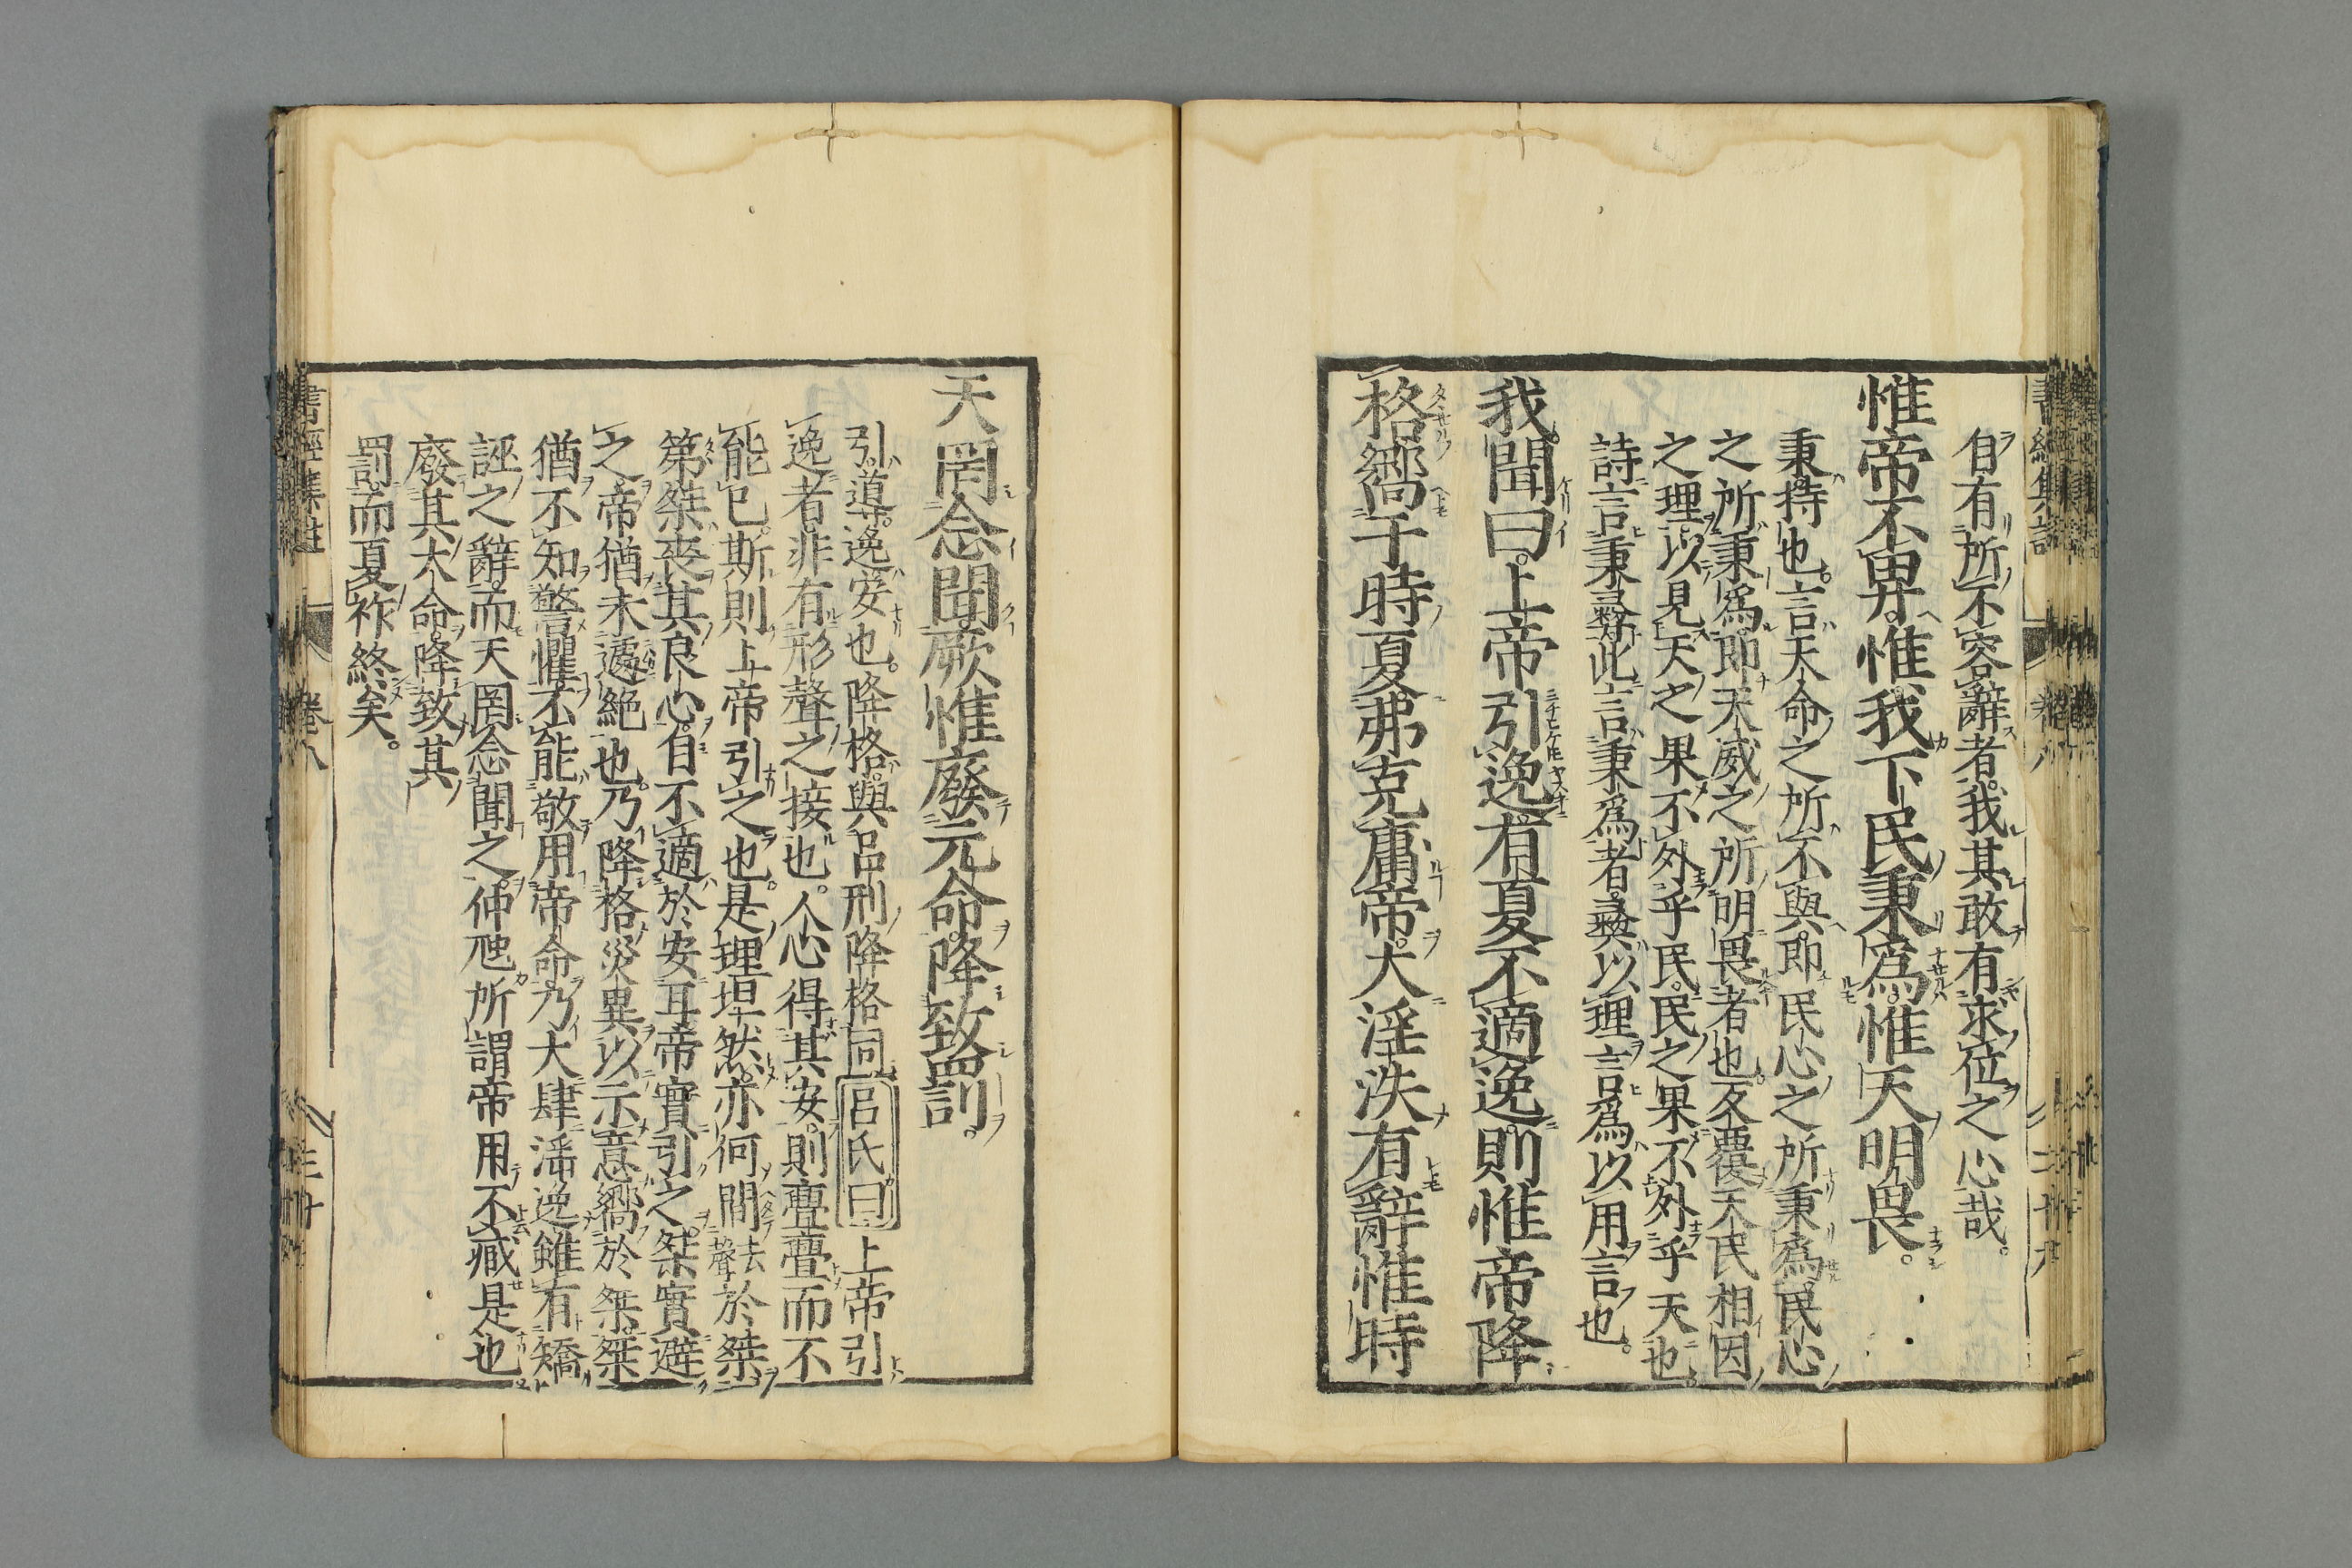 自有所不容辭者我其敢有求位之心哉。
惟帝不畀惟我下民秉爲惟天明畏。
秉持也言天命之所不與即民心之所秉爲民心
之所秉爲即天威之所明畏者也反覆天民相因
之理以見天之果不外乎民民之果不外乎天也。
詩言秉彝此言秉爲者彝以理言爲以用言也。
我聞曰上帝引逸有夏不適逸則惟帝降
格嚮于時夏弗克庸帝大淫泆有辭惟時
天罔念聞厥惟廢元命降致罰。
引導逸安也。降格與呂刑降格同呂氏曰上帝引
逸者非有形聲之接也。人心得其安則亹亹而不
能已斯則上帝引之也是理坦然亦何間去聲於桀
第桀喪其良心自不適於安耳帝實引之桀實避
之帝猶未遽絕也乃降格災異以示意嚮於桀桀
猶不知警懼不能敬用帝命乃大肆淫逸雖有矯
誣之辭而天罔念聞之仲虺所謂帝用不臧是也
廢其大命降致其
罰而夏祚終矣。
書經集註 卷八